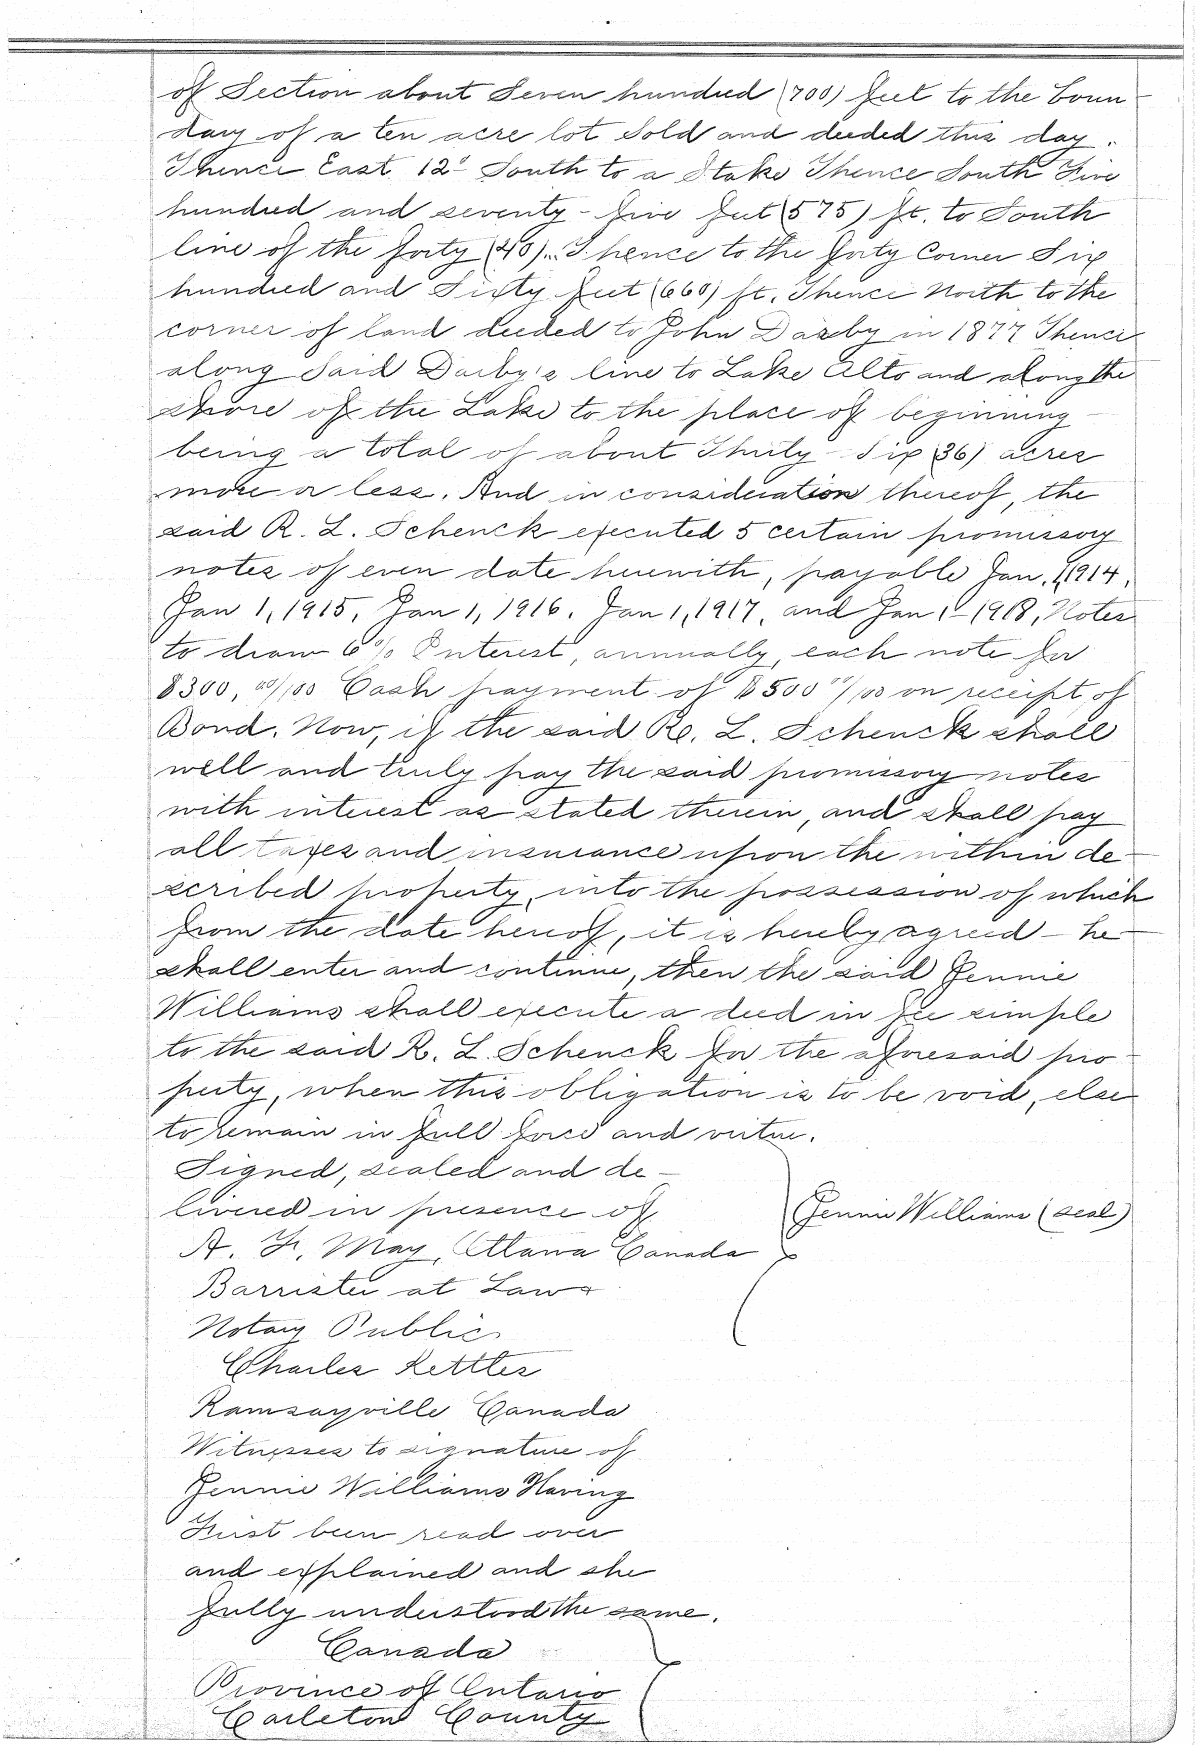 of Section about Seven hundred (700) feet to the boun-
dary of a ten acre lot sold and deeded this day.
Thence East 12° South to a Stake Thence South Five
hundred and seventy-five feet (575) ft. to South
line of the forty (40). Thence to the forty corner Six
hundred and Sixty feet (660) ft. Thence North to the
corner of land deeded to John Darby in 1877 Thence
along Said Darby's line to Lake Alto and along the
shore of the Lake to the place of beginning
being a total of about Thirty-Six (36) acres
more or less. And in consideration thereof, the
said R. L. Schenck executed 5 certain promissory
notes of even date herewith, payable Jan. 1, 1914,
Jan 1, 1915, Jan 1, 1916. Jan 1, 1917, and Jan 1-1918, Notes
to draw 6% Interest, annually, each note for
$300, 00/100 Cash payment of $500 00/100 on receipt of
Bond. Now, if the said R. L. Schenck shall
well and truly pay the said promissory notes
with interest as stated therein, and shall pay
all taxes and insurance upon the within de-
scribed property, into the possession of which
from the date hereof, it is hereby agreed - he
shall enter and continue, then the said Jennie
Williams shall execute a deed in fee simple
to the said R. L. Schenck for the aforesaid pro-
perty, when this obligation is to be void, else
to remain in full force and virtue.
Signed, sealed and de-
livered in presence of
Jennie Williams (seal)
A. F. May, Ottawa Canada
Barrister at Law &
Notary Public
Charles Kettles
Ramsayville Canada
Witnesses to signature of
Jennie Williams Having
First been read over
and explained and she
fully understood the same.
Canada
Province of Ontario
Carleton County